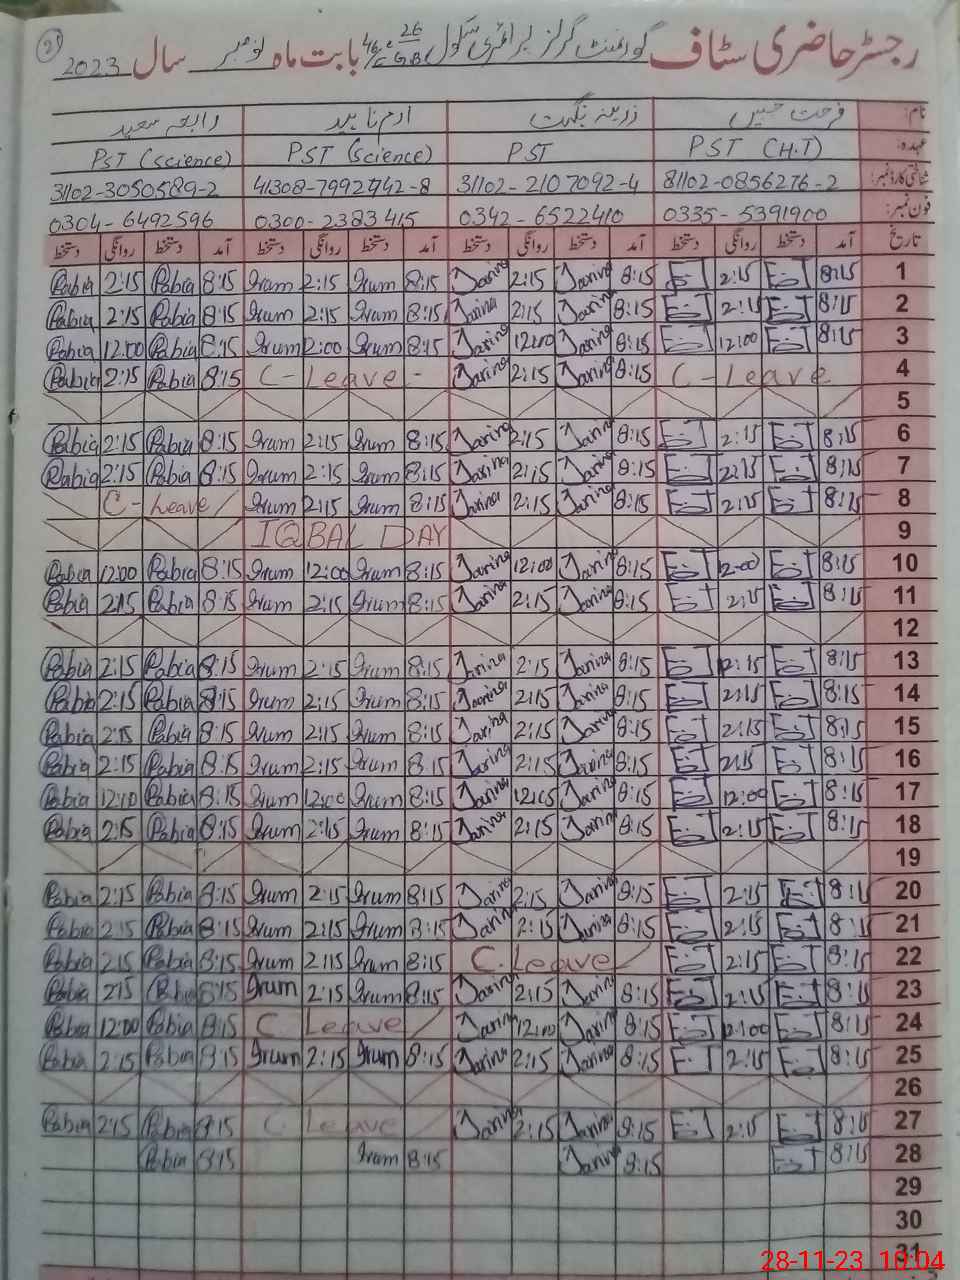 رجسٹر حاضری سٹاف گورنمنٹ گرلز پرائمری سکول بابت ماہ نومبر سال 2023
21
نام: فرحت جبیں زرینہ نگہت ارم ناہید رابعہ سعید
عہدہ: PST (H.T) PST PST (science) PST (science)
شناختی کارڈ نمبر: 81102-0856276-2 31102-2107092-4 41308-7992742-8 31102-3050589-2
فون نمبر: 0335-5391900 0342-6522410 0300-2383415 0304-6492596
تاریخ آمد دستخط روانگی دستخط آمد دستخط روانگی دستخط آمد دستخط روانگی دستخط آمد دستخط روانگی دستخط
1 8:15 2:15 8:15 Zarina 2:15 Zarina 8:15 Irum 2:15 Irum 8:15 Rabia 2:15 Rabia
2 8:15 2:15 8:15 Zarina 2:15 Zarina 8:15 Irum 2:15 Irum 8:15 Rabia 2:15 Rabia
3 8:15 12:00 8:15 Zarina 12:00 Zarina 8:15 Irum 2:00 Irum 8:15 Rabia 12:00 Rabia
4 C-Leave 8:15 Zarina 2:15 Zarina C-Leave- 8:15 Rabia 2:15 Rabia
5
6 8:15 2:15 8:15 Zarina 2:15 Zarina 8:15 Irum 2:15 Irum 8:15 Rabia 2:15 Rabia
7 8:15 2:15 8:15 Zarina 2:15 Zarina 8:15 Irum 2:15 Irum 8:15 Rabia 2:15 Rabia
8 8:15 2:15 8:15 Zarina 2:15 Zarina 8:15 Irum 2:15 Irum C-Leave
9 IQBAL DAY
10 8:15 12:00 8:15 Zarina 12:00 Zarina 8:15 Irum 12:00 Irum 8:15 Rabia 12:00 Rabia
11 8:15 2:15 8:15 Zarina 2:15 Zarina 8:15 Irum 2:15 Irum 8:15 Rabia 2:15 Rabia
12
13 8:15 2:15 8:15 Zarina 2:15 Zarina 8:15 Irum 2:15 Irum 8:15 Rabia 2:15 Rabia
14 8:15 2:15 8:15 Zarina 2:15 Zarina 8:15 Irum 2:15 Irum 8:15 Rabia 2:15 Rabia
15 8:15 2:15 8:15 Zarina 2:15 Zarina 8:15 Irum 2:15 Irum 8:15 Rabia 2:15 Rabia
16 8:15 2:15 8:15 Zarina 2:15 Zarina 8:15 Irum 2:15 Irum 8:15 Rabia 2:15 Rabia
17 8:15 12:00 8:15 Zarina 12:00 Zarina 8:15 Irum 12:00 Irum 8:15 Rabia 12:00 Rabia
18 8:15 2:15 8:15 Zarina 2:15 Zarina 8:15 Irum 2:15 Irum 8:15 Rabia 2:15 Rabia
19
20 8:15 2:15 8:15 Zarina 2:15 Zarina 8:15 Irum 2:15 Irum 8:15 Rabia 2:15 Rabia
21 8:15 2:15 8:15 Zarina 2:15 Zarina 8:15 Irum 2:15 Irum 8:15 Rabia 2:15 Rabia
22 8:15 2:15 C.Leave 8:15 Irum 2:15 Irum 8:15 Rabia 2:15 Rabia
23 8:15 2:15 8:15 Zarina 2:15 Zarina 8:15 Irum 2:15 Irum 8:15 Rabia 2:15 Rabia
24 8:15 12:00 8:15 Zarina 12:00 Zarina C Leave 8:15 Rabia 12:00 Rabia
25 8:15 2:15 8:15 Zarina 2:15 Zarina 8:15 Irum 2:15 Irum 8:15 Rabia 2:15 Rabia
26
27 8:15 2:15 8:15 Zarina 2:15 Zarina C Leave 8:15 Rabia 2:15 Rabia
28 8:15 8:15 Zarina 8:15 Irum 8:15 Rabia
29
30
31
28-11-23 10:04